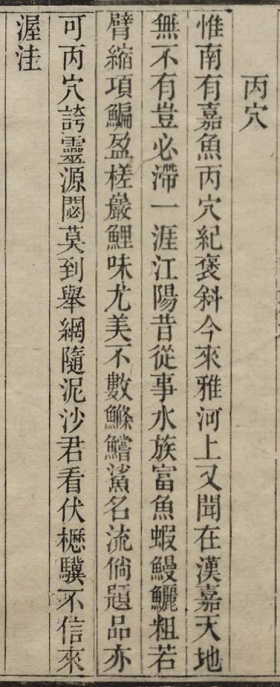 丙穴
惟南有嘉魚丙穴紀褒斜今來雅河上又聞在漢嘉天地
無不有豈必滯一涯江陽昔從事水族富魚蝦鰻鱺粗若
臂縮項鯿盈槎巖鯉味尤美不數鰷鱨鯊名流倘題品亦
可丙穴誇靈源閟莫到舉網隨泥沙君看伏櫪驥不信來
渥洼